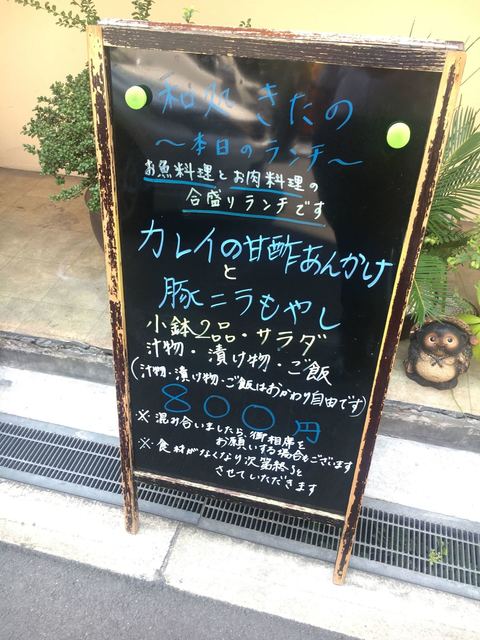 和処 きたの
～本日のランチ～
お魚料理とお肉料理の
合盛りランチです
カレイの甘酢あんかけ
と
豚ニラもやし
小鉢2品・サラダ
汁物・漬け物・ご飯
(汁物・漬け物・ご飯はおかわり自由です)
800円
※混み合いましたら、御相席を
お願いする場合もございます
※食材がなくなり次第終りと
させていただきます